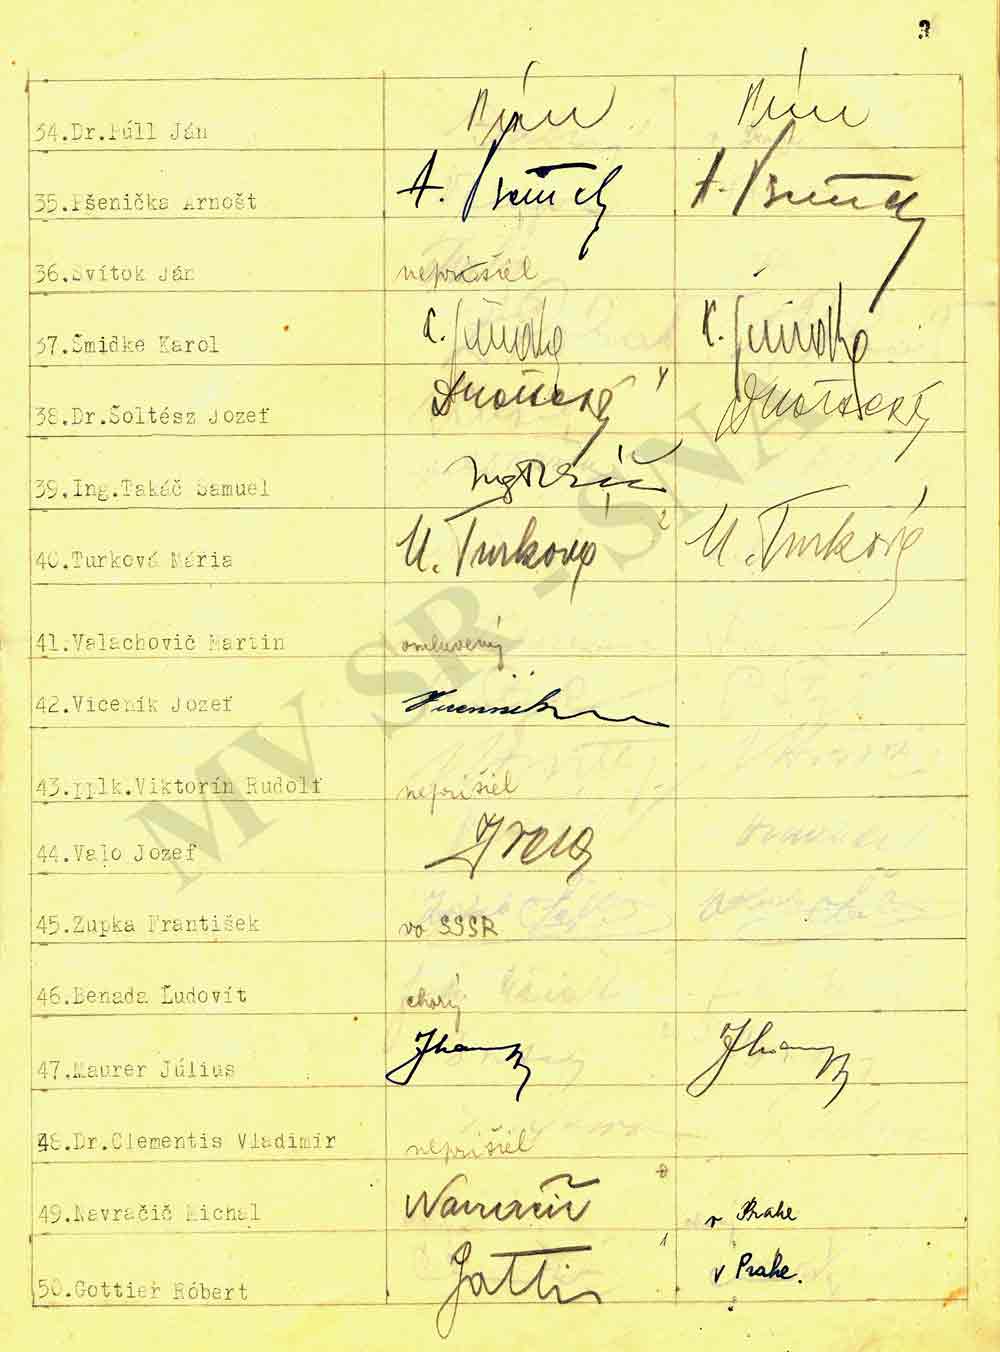 3
34.Dr.Púll Ján
35.Pšenička Arnošt A. A.
36.Svítok Ján neprišiel
37.Šmidke Karol K. Šmidke K. Šmidke
38.Dr.Šoltész Jozef
39.Ing.Takáč Samuel
40.Turková Mária M. Turková M. Turková
41.Valachovič Martin omluvený
42.Viceník Jozef
43.pplk.Viktorín Rudolf neprišiel
44.Valo Jozef
45.Zupka František vo SSSR
46.Benada Ľudovít chorý
47.Maurer Július
48.Dr.Clementis Vladimír neprišiel
49.Navračič Michal v Prahe
50.Gottier Róbert v Prahe.
MV SR - SNA